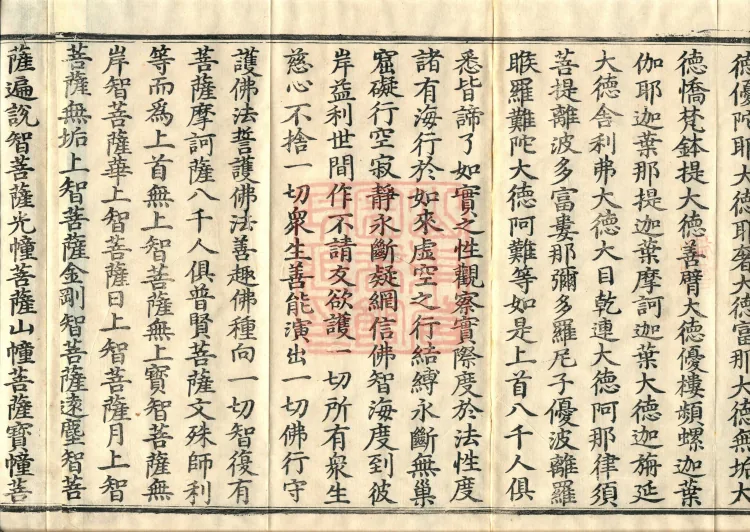 德優陀耶大德耶奢大德富那大德無垢大
德憍梵鉢提大德善臂大德優樓頻螺迦葉
伽耶迦葉那提迦葉摩訶迦葉大德迦旃延
大德舍利弗大德大目乾連大德阿那律須
菩提離波多富婁那彌多羅尼子優波離羅
睺羅難陀大德阿難等如是上首八千人俱
悉皆諦了如實之性觀察實際度於法性度
諸有海行於如來虛空之行結縛永斷無巢
窟礙行空寂靜永斷疑網信佛智海度到彼
岸益利世間作不請友欲護一切所有衆生
慈心不捨一切衆生善能演出一切佛行守
護佛法誓護佛法善趣佛種向一切智復有
菩薩摩訶薩八千人俱普賢菩薩文殊師利
等而爲上首無上智菩薩無上寶智菩薩無
岸智菩薩華上智菩薩日上智菩薩月上智
菩薩無垢上智菩薩金剛智菩薩遠塵智菩
薩遍說智菩薩光幢菩薩山幢菩薩寶幢菩